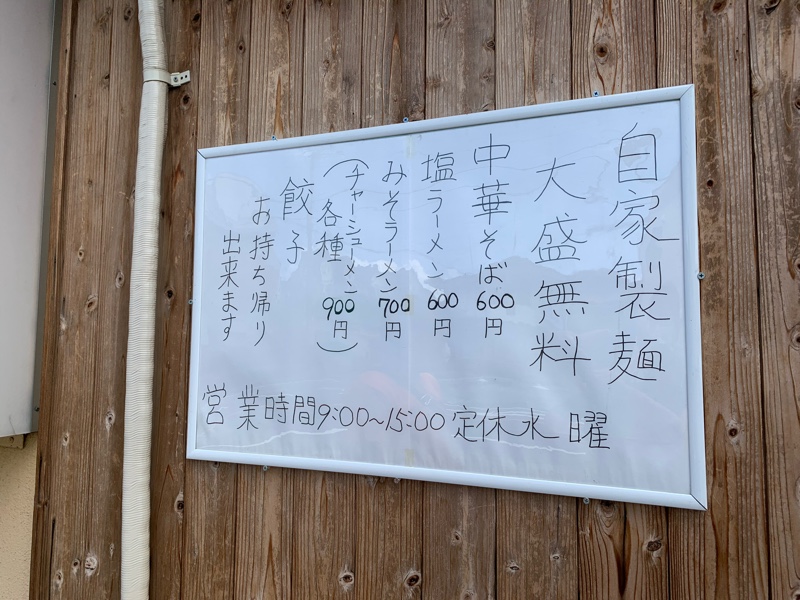 自家製麺
大盛無料
中華そば600円
塩ラーメン600円
みそラーメン700円
(チャーシューメン
各種900円)
餃子
お持ち帰り
出来ます
営業時間9:00~15:00 定休水曜